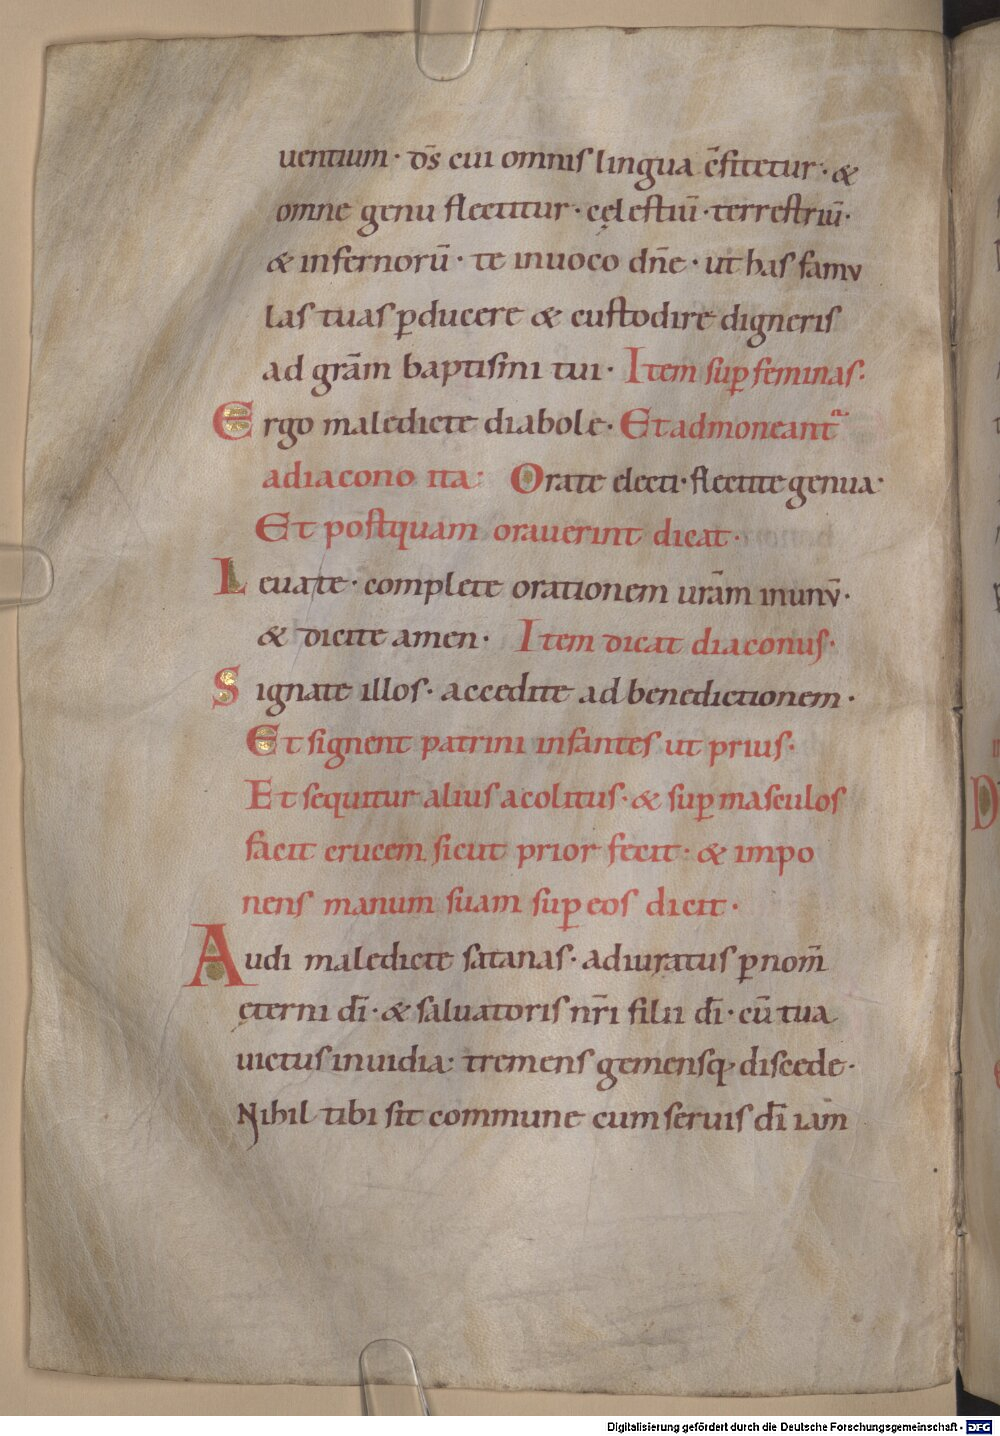 uentium · d̄s cui omnis lingua c̄fitetur · &
omne genu flectitur · cęlestiū · terrestriū ·
& infernorū · te inuoco dn̄e · ut has famu
las tuas ꝑducere & custodire digneris
ad grām baptismi tui · Item suꝑ feminas ·
Ergo maledicte diabole · Et admoneant
a diacono ita: Orate electi · flectite genua ·
Et postquam orauerint dicat ·
Leuate · complete orationem urām inunū ·
& dicite amen · Item dicat diaconus ·
Signate illos · accedite ad benedictionem ·
Et signent patrini infantes ut prius ·
Et sequitur alius acolitus · & suꝑ masculos
facit crucem sicut prior fecit · & impo
nens manum suam suꝑ eos dicit ·
Audi maledicte satanas · adiuratus ꝑ nom̄
ęterni dī · & saluatoris nr̄i filii dī · cū tua
uictus inuidia · tremens gemensq; discede ·
Nihil tibi sit commune cum seruis dī iam
Digitalisierung gefördert durch die Deutsche Forschungsgemeinschaft - DFG